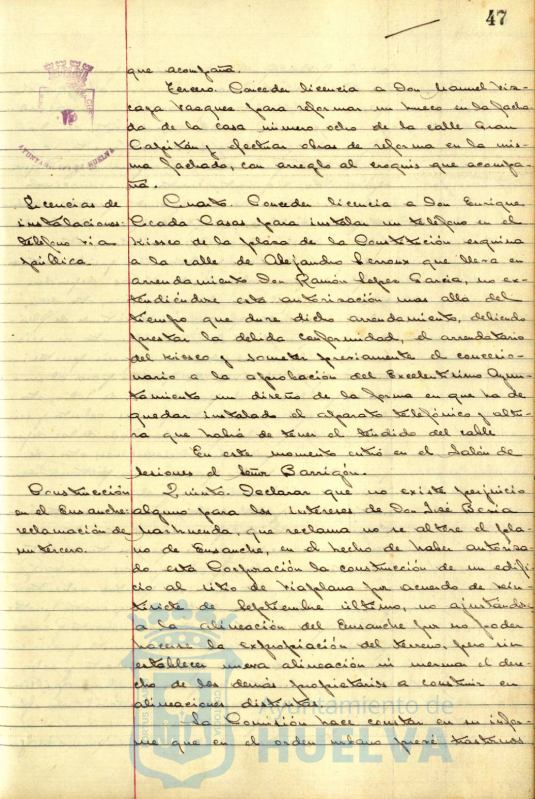 47
que acompaña.
Tercero. Conceder licencia a Don Manuel Viz-
caya Vasquez para reformar un hueco en la facha-
da de la casa número ocho de la calle Gran
Capitán y efectuar obras de reforma en la mis-
ma fachada, con arreglo al croquis que acompa-
ña.
Licencias de
instalaciones
teléfono vía
pública.
Cuarto. Conceder licencia a Don Enrique
Casas para instalar un teléfono en el
kiosco de la plaza de la Constitución esquina
a la calle de Alejandro Lerroux que lleva en
arrendamiento Don Ramón López García, no ex-
tendiéndose esta autorización mas allá del
tiempo que dure dicho arrendamiento, debiendo
prestar la debida conformidad, el arrendatario
del kiosco y someter previamente el concesio-
nario a la aprobación del Excelentísimo Ayun-
tamiento un diseño de la forma en que ha de
quedar instalado el aparato telefónico y altu-
ra que habrá de tener el tendido del cable
En este momento entró en el Salón de
sesiones el Señor Barrigón.
Construcción
en el Ensanche:
reclamación de
un tercero.
Quinto. Declarar que no existe perjuicio
alguno para los intereses de Don José
que reclama no se altere el pla-
no de Ensanche, en el hecho de haber autoriza-
do esta Corporación la construcción de un edifi-
cio al sitio de Viaplana por acuerdo de vein-
tisiete de Septiembre último, no ajustándose
a la alineación del Ensanche por no poder
hacerse la expropiación del terreno, pero sin
establecer nueva alineación ni mermar el dere-
cho de los demás propietarios a construir en
alineaciones distintas.
La Comisión hace constar en su infor-
me que en el orden urbano prevé trastornos
AYUNTAMIENTO HUELVA
Ayuntamiento de
HUELVA